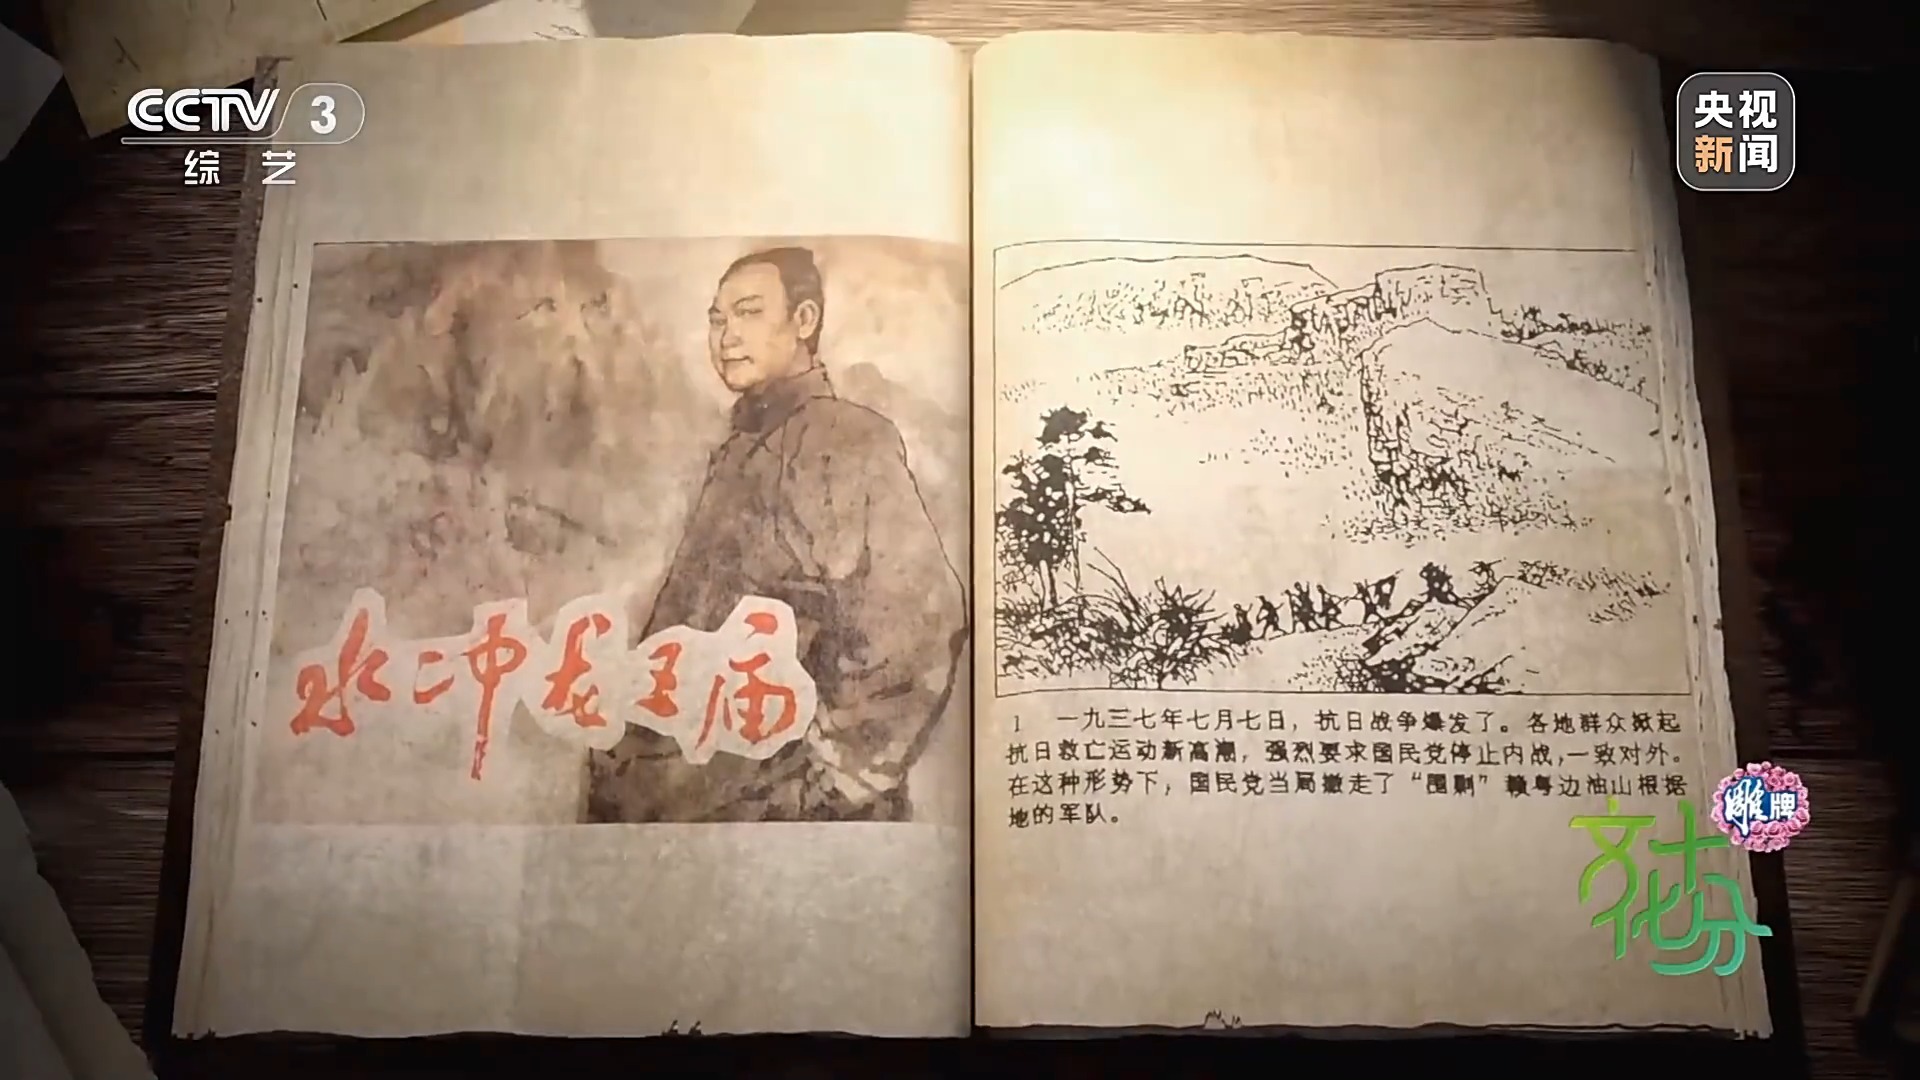 CCTV 3
综艺
央视
新闻
水冲龙王庙
1 一九三七年七月七日，抗日战争爆发了。各地群众掀起
抗日救亡运动新高潮，强烈要求国民党停止内战，一致对外。
在这种形势下，国民党当局撤走了“围剿”赣粤边油山根据
地的军队。
雕牌
文化十分